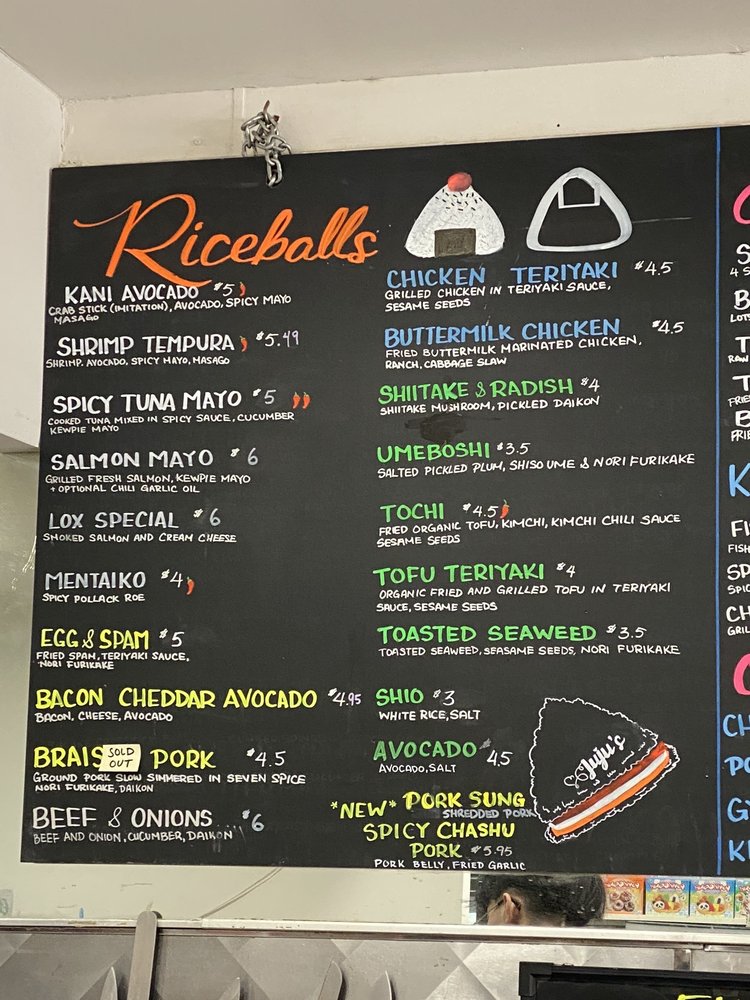 Riceballs
KANI AVOCADO $5
CRAB STICK (IMITATION), AVOCADO, SPICY MAYO
MASAGO
SHRIMP TEMPURA $5.49
SHRIMP, AVOCADO, SPICY MAYO, MASAGO
SPICY TUNA MAYO $5
COOKED TUNA MIXED IN SPICY SAUCE, CUCUMBER
KEWPIE MAYO
SALMON MAYO $6
GRILLED FRESH SALMON, KEWPIE MAYO
+ OPTIONAL CHILI GARLIC OIL
LOX SPECIAL $6
SMOKED SALMON AND CREAM CHEESE
MENTAIKO $4
SPICY POLLACK ROE
EGG & SPAM $5
FRIED SPAM, TERIYAKI SAUCE,
NORI FURIKAKE
BACON CHEDDAR AVOCADO $4.95
BACON, CHEESE, AVOCADO
BRAIS SOLD OUT PORK $4.5
GROUND PORK SLOW SIMMERED IN SEVEN SPICE
NORI FURIKAKE, DAIKON
BEEF & ONIONS $6
BEEF AND ONION, CUCUMBER, DAIKON
CHICKEN TERIYAKI $4.5
GRILLED CHICKEN IN TERIYAKI SAUCE,
SESAME SEEDS
BUTTERMILK CHICKEN $4.5
FRIED BUTTERMILK MARINATED CHICKEN,
RANCH, CABBAGE SLAW
SHIITAKE & RADISH $4
SHIITAKE MUSHROOM, PICKLED DAIKON
UMEBOSHI $3.5
SALTED PICKLED PLUM, SHISO UME & NORI FURIKAKE
TOCHI $4.5
FRIED ORGANIC TOFU, KIMCHI, KIMCHI CHILI SAUCE
SESAME SEEDS
TOFU TERIYAKI $4
ORGANIC FRIED AND GRILLED TOFU IN TERIYAKI
SAUCE, SESAME SEEDS
TOASTED SEAWEED $3.5
TOASTED SEAWEED, SEASAME SEEDS, NORI FURIKAKE
SHIO $3
WHITE RICE, SALT
AVOCADO $4.5
AVOCADO, SALT
*NEW* PORK SUNG
SHREDDED PORK
SPICY CHASHU
PORK $5.95
PORK BELLY, FRIED GARLIC
Juju's